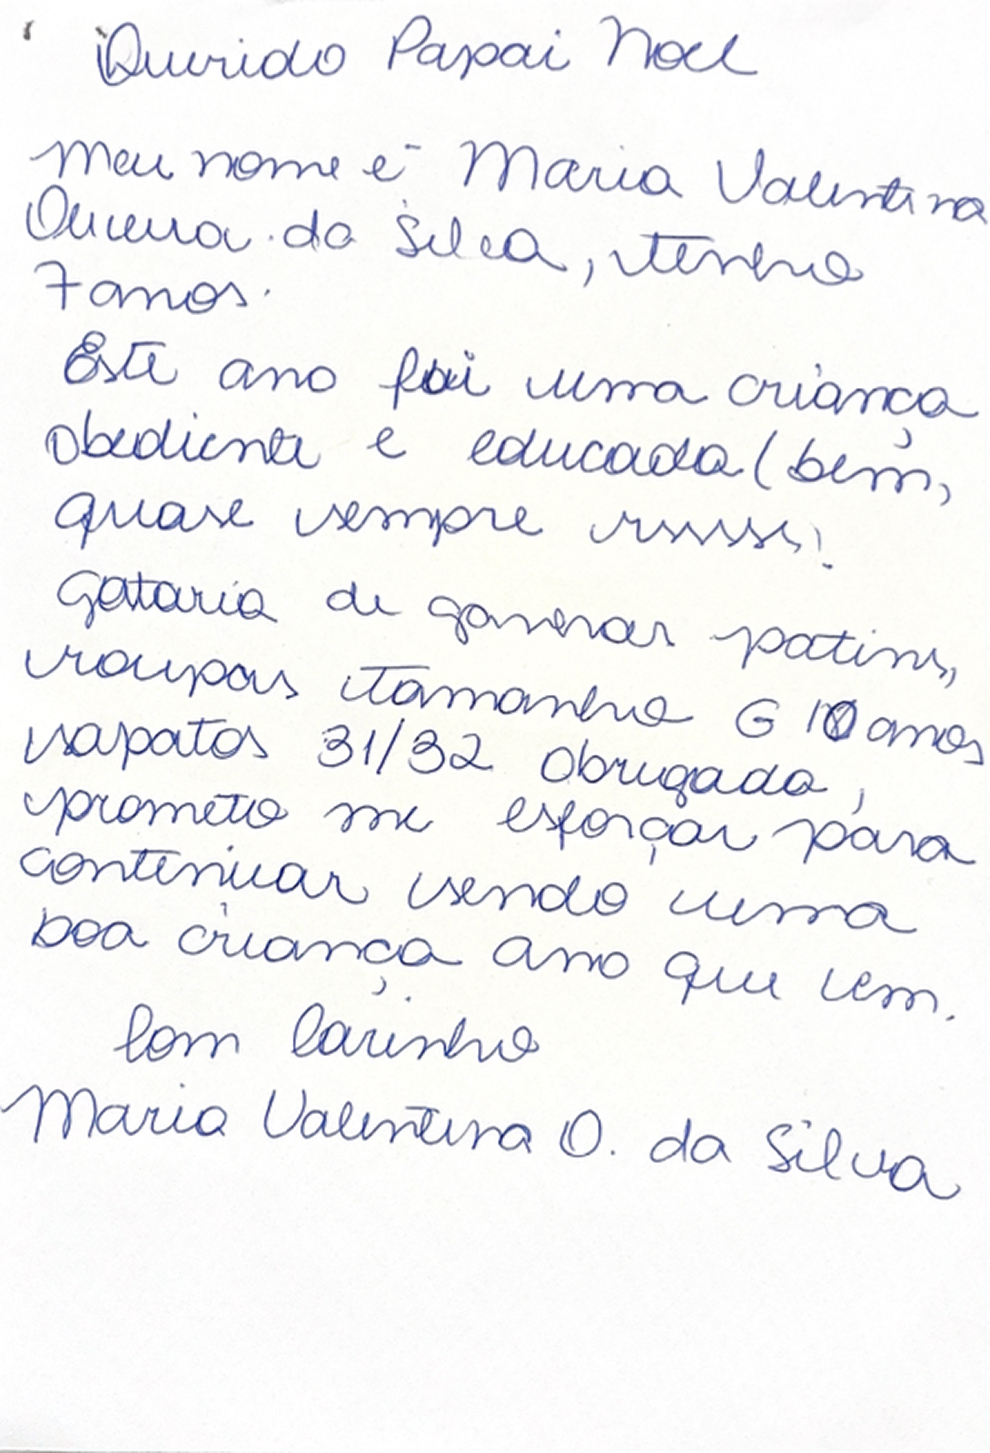 Querido Papai Noel
Meu nome é Maria Valentina
Oliveira da Silva, tenho
7 anos.
Este ano fui uma criança
obediente e educada (bem,
quase sempre rsrsrs)!
Gataria de ganhar patins,
roupas tamanho G 10 anos
sapatos 31/32 Obrigada,
prometo me esforçar para
continuar sendo uma
boa criança ano que vem.
Com Carinho
Maria Valentina O. da Silva